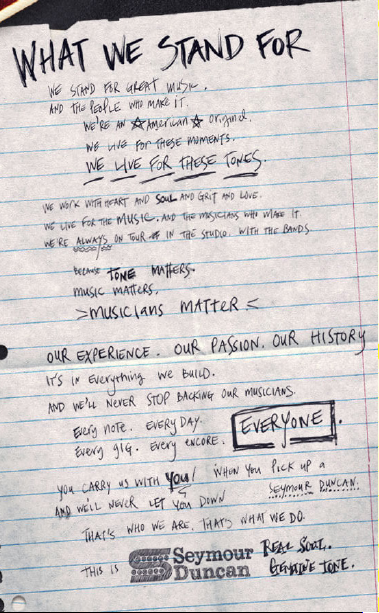 WHAT WE STAND FOR
WE STAND FOR GREAT MUSIC.
AND THE PEOPLE WHO MAKE IT.
WE'RE AN ☆American☆ Original.
WE LIVE FOR THESE MOMENTS.
WE LIVE FOR THESE TONES.
WE WORK WITH HEART AND SOUL AND GRIT AND LOVE.
WE LIVE FOR THE MUSIC, AND THE MUSICIANS WHO MAKE IT.
WE'RE ALWAYS ON TOUR IN THE STUDIO. WITH THE BANDS
because TONE MATTERS.
music matters.
>musicians matter.<
OUR EXPERIENCE. OUR PASSION. OUR HISTORY
IT'S IN EVERYTHING WE BUILD.
AND WE'LL NEVER STOP BACKING OUR MUSICIANS.
Every note. EVERY DAY.
Every gig. Every encore. EVERYONE.
YOU CARRY US WITH YOU! WHEN YOU PICK UP A
SEYMOUR DUNCAN.
AND WE'LL NEVER LET YOU DOWN
THAT'S WHO WE ARE. THAT'S WHAT WE DO.
THIS IS Seymour Duncan REAL SOUL.
GENUINE TONE.